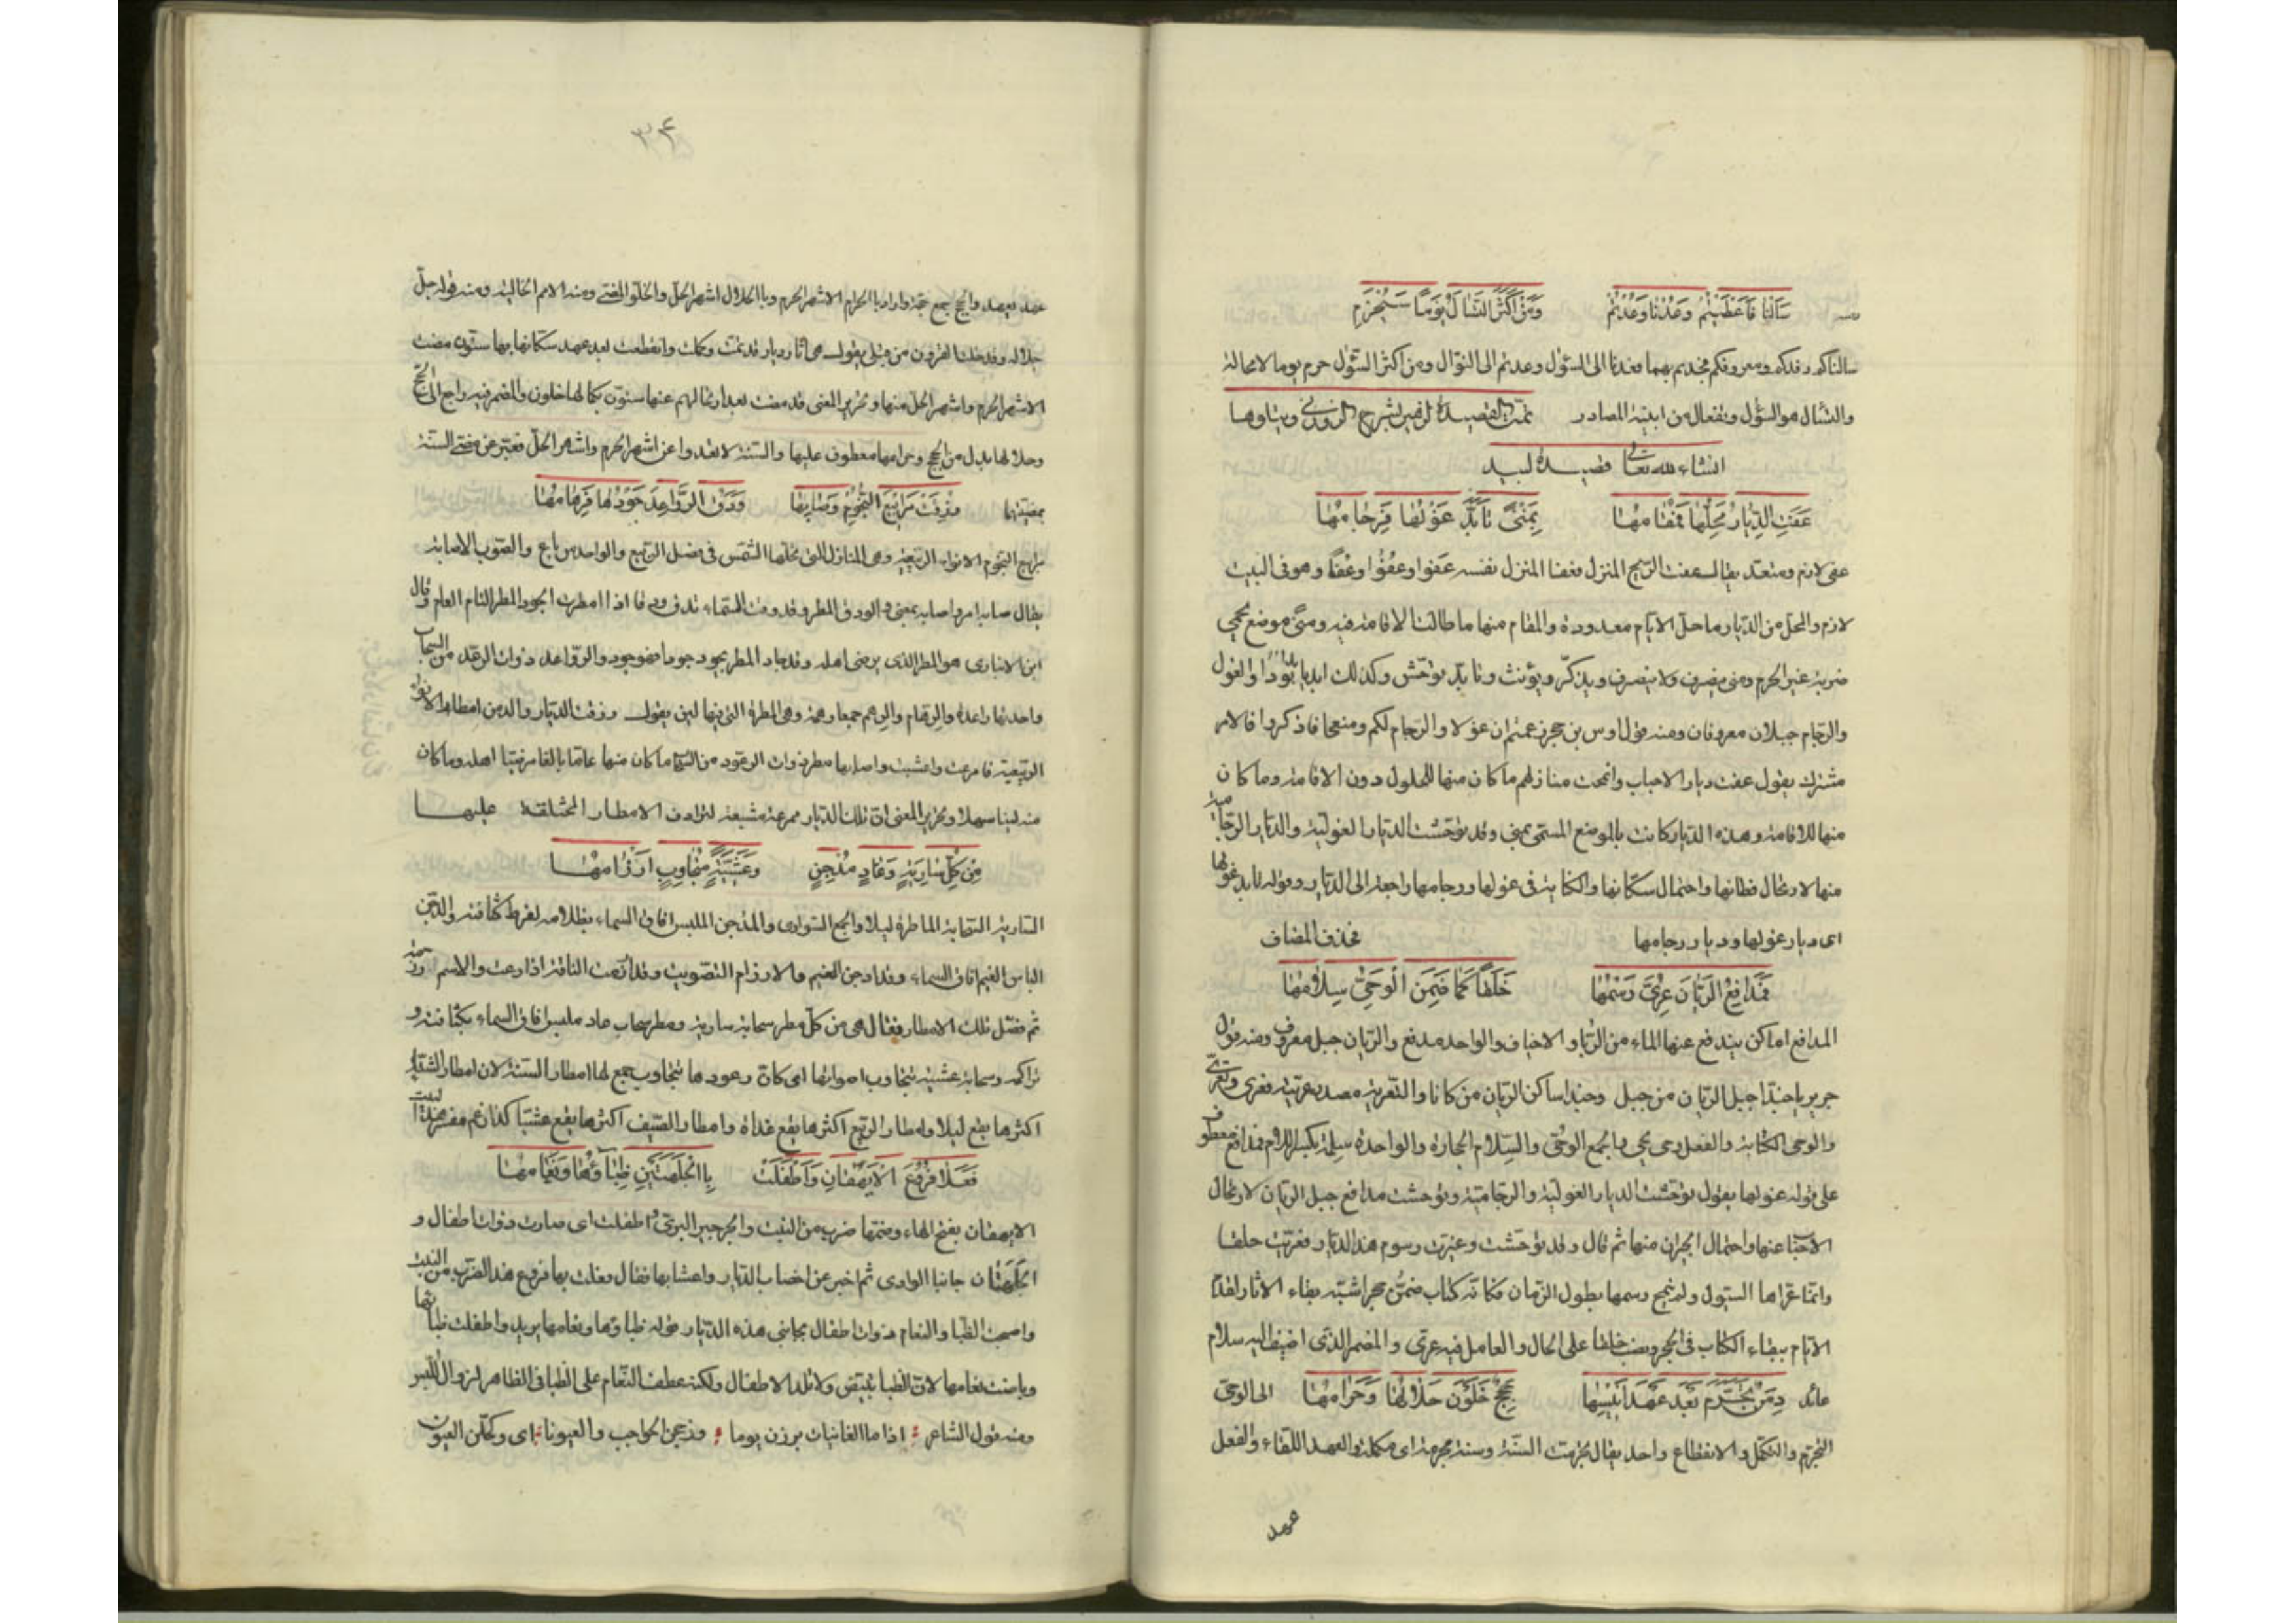 سَألنا فَأعْطَيْتُم وَعُدْنا وَعُدْتُم وَمَنْ أكْثَرَ التَّسْآلَ يَوْمًا سَيُحْرَمِ
سالناكم رفدكم ومعروفكم فجدتم بهما فعدنا الى السؤل وعدتم الى النوال ومن اكثر السؤل حرم يوما لا محالة
والتسآل هو السؤل وتفعال من ابنية المصادر تمت القصيدة لزهير بشرح الزوزني ويتلوها
انشاء لله تعالى قصيدة لبيد
عَفَتِ الدِّيارُ مَحَلُّها فَمُقامُها بِمِنىً تَأبَّدَ غَوْلُها فَرِجامُها
عفى لازم ومتعد يقال عفت الريح المنزل وعفا المنزل نفسه عفوا وعُفُوًّا وعفاء وهو فى البيت
لازم والمحل من الديار ما حل الايام معدودة والمقام منها ما طالت الاقامة فيه ومنىً موضع بحمى
ضرية غير الحرم ومنى ينصرف ولا ينصرف ويذكر ويؤنث وتأبد توحش وكذلك ابد يأبد ابودا والغول
والرجام جبلان معروفان ومنه قول اوس بن حجر زعمتم ان غولا والرجام لكم ومنعجا فاذكروا فالامر
مشترك يقول عفت ديار الاحباب وانمحت منازلهم ما كان منها للحلول دون الاقامة وما كان
منها للاقامة وهذه الديار كانت بالموضع المسمى بمنى وقد توحشت الديار الغولية والديار الرجامية
منها لارتحال قطانها واحتمال سكانها والكناية فى غولها ورجامها راجعة الى الديار وقوله تأبد غولها
اى ديار غولها وديار رجامها فحذف المضاف
فَمَدافِعُ الرَّيّانِ عُرِّيَ رَسْمُها خَلَقًا كَما ضَمِنَ الوُحِيَّ سِلامُها
المدافع اماكن يندفع عنها الماء من الربا والاخياف والواحد مدفع والريان جبل معروف ومنه قول
جرير يا حبذا جبل الريان من جبل وحبذا ساكن الريان من كانا والتعرية مصدر عريته فعرى وتعرى
والوحى الكتابة والفعل وحى يحى والجمع الوحى والسلام الحجارة والواحدة سلمة بكسر اللام فمدافع معطوف
على قوله غولها يقول توحشت الديار الغولية والرجامية وتوحشت مدافع جبل الريان لارتحال
الاحبا عنها واحتمال الجيران منها ثم قال وقد توحشت وغيرت رسوم هذه الديار فعريت خلقا
وانما عراها السيول ولم تنمح رسمها بطول الزمان فكانه كتاب ضمن حجرا شبه بقاء الاثار لقدم
الايام ببقاء الكتاب فى الحجر ونصب خلقا على الحال والعامل فيه عرى والمضمر الذى اضيف اليه سلام
عائد دِمَنٌ تَجَرَّمَ بَعْدَ عَهْدِ أنيسِها حِجَجٌ خَلَوْنَ حَلالُها وَحَرامُها الى الوحى
التجرم والتكمل والانقطاع واحد يقال تجرمت السنة وسنة مجرمة اى مكملة والعهد اللقاء والفعل
عهد
٣٤
عهد يعهد والحجج جمع حجة واراد بالحرام الاشهر الحرم وبالحلال اشهر الحل والخلو المضى ومنه الامم الخالية ومنه قوله جل
جلاله وقد خلت القرون من قبلى يقول هى اثار ديار قد تمت وكملت وانقطعت بعد عهد سكانها بها سنون مضت
الاشهر الحرم واشهر الحل منها وتحرير المعنى قد مضت بعد ارتحالهم عنها سنون بكمالها خلون والمضمر فيه راجع الى الحجج
وحلالها بدل من الحجج وحرامها معطوف عليها والسنة لا تعدوا عن اشهر الحرم واشهر الحل فعبر عن مضى السنة
بمضيتها رُزِقَتْ مَرابيعَ النُّجومِ وَصابَها وَدْقُ الرَّواعِدِ جَوْدُها فَرِهامُها
مرابيع النجوم الانواء الربيعية وهى المنازل التى تحلها الشمس فى فصل الربيع والواحد مرباع والصوب الاصابة
يقال صابه امر واصابه بمعنى والودق المطر وقد ودقت السماء تدق ودقا اذا امطرت الجود المطر التام العام وقال
ابن الانبارى هو المطر الذى يرضى اهله وقد جاد المطر يجود جودا فهو جود والرواعد ذوات الرعد من السحاب
واحدتها راعدة والرهام والرهم جمعا رهمة وهى المطرة التى فيها لين يقول رزقت الديار والدمن امطار الانواء
الربيعية فامرعت واعشبت واصابها مطر ذوات الرعود من السحاب ما كان منها عاما بالغا مرضيا اهله وما كان
منه لينا سهلا وتحرير المعنى ان تلك الديار ممرعة معشبة لترادف الامطار المختلفة عليها
مِنْ كُلِّ سارِيَةٍ وَغادٍ مُدْجِنٍ وَعَشِيَّةٍ مُتَجاوِبٍ إرْزامُها
السارية السحابة الماطرة ليلا والجمع السوارى والمدجن الملبس افاق السماء بظلامه لفرط كثافته والدجن
الباس الغيم افاق السماء وقد ادجن الغيم والارزام التصويت وقد ارزمت الناقة اذا رغت والاسم رزمة
ثم فصل تلك الامطار فقال هى من كل مطر سحابة سارية ومطر سحاب غاد ملبس افاق السماء بكثافته و
تراكمه وسحابة عشية تتجاوب اصواتها اى كان رعودها تتجاوب جمع لها امطار السنة لان امطار الشتاء
اكثرها يقع ليلا وامطار الربيع اكثرها يقع غداة وامطار الصيف اكثرها يقع عشيا كذا زعم مفسر هذا البيت
فَعَلا فُروعُ الأيْهُقانِ وَأطْفَلَتْ بِالجَلْهَتَيْنِ ظِباؤُها وَنَعامُها
الايهقان بفتح الهاء وضمها ضرب من النبت والجرجير البرى اطفلت اى صارت ذوات اطفال و
الجلهتان جانبا الوادى ثم اخبر عن اخصاب الديار واعشابها فقال وعلت بها فروع هذا الضرب من النبت
واصبحت الظبا والنعام ذوات اطفال بجانبى هذه الديار قوله ظباؤها ونعامها يريد واطفلت ظباؤها
وباضت نعامها لان الظبا تبيض ولا تلد الاطفال ولكنه عطف النعام على الظبا فى الظاهر لزوال اللبس
ومنه قول الشاعر اذا ما الغانيات برزن يوما وزججن الحواجب والعيونا اى وكحلن العيون